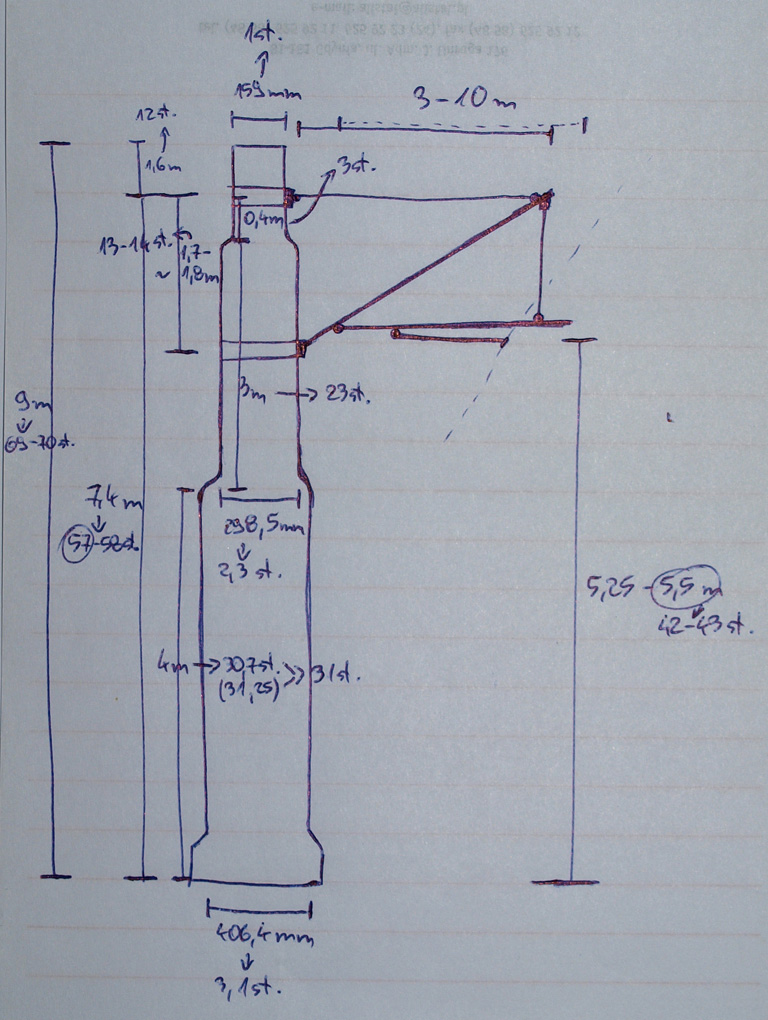 1st.
159mm
3-10m
12st.
1,6m
3st.
0,4m
13-14st.
~ 1,7-
1,8m
3m → 23st.
9m
69-70st.
7,4m
57-58st.
298,5mm
2,3st.
5,25-5,5m
42-43st.
4m → 30,7st. >> 31st.
(31,25)
406,4mm
3,1st.